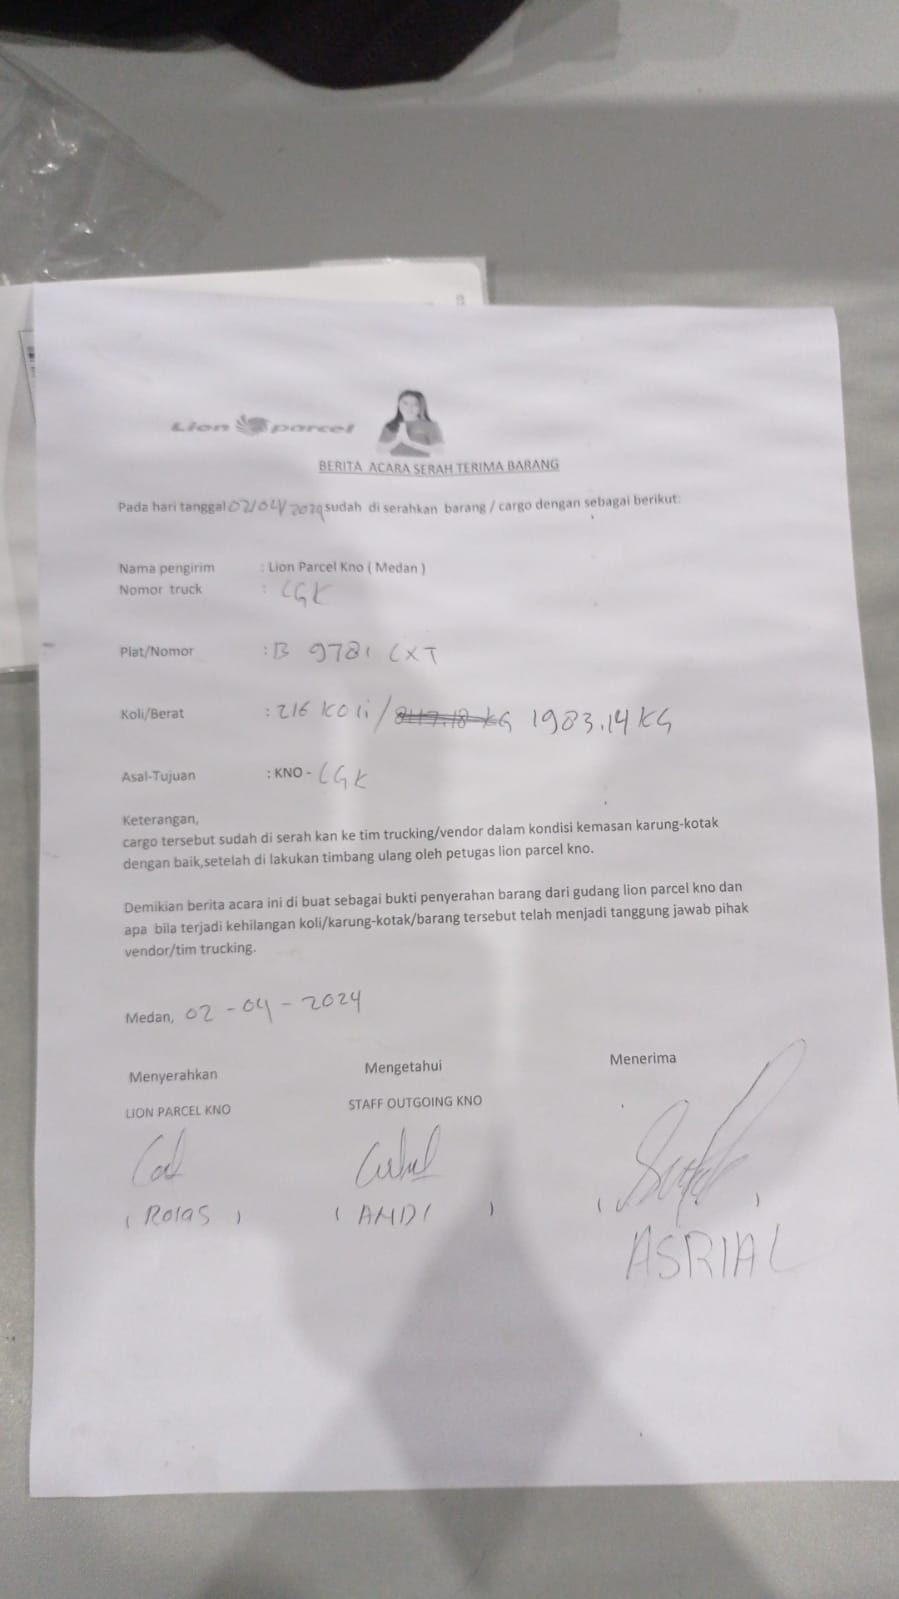 Lion parcel
BERITA ACARA SERAH TERIMA BARANG
Pada hari tanggal 02/04/2024 sudah di serahkan barang / cargo dengan sebagai berikut:
Nama pengirim : Lion Parcel Kno ( Medan )
Nomor truck : CGK
Plat/Nomor : B 9781 CXT
Koli/Berat : 216 KOli / 1983.14 KG
Asal-Tujuan : KNO - CGK
Keterangan,
cargo tersebut sudah di serah kan ke tim trucking/vendor dalam kondisi kemasan karung-kotak
dengan baik,setelah di lakukan timbang ulang oleh petugas lion parcel kno.
Demikian berita acara ini di buat sebagai bukti penyerahan barang dari gudang lion parcel kno dan
apa bila terjadi kehilangan koli/karung-kotak/barang tersebut telah menjadi tanggung jawab pihak
vendor/tim trucking.
Medan, 02 - 04 - 2024
Menyerahkan Mengetahui Menerima
LION PARCEL KNO STAFF OUTGOING KNO
( ROIAS ) ( ANDI ) ( )
ASRIAL